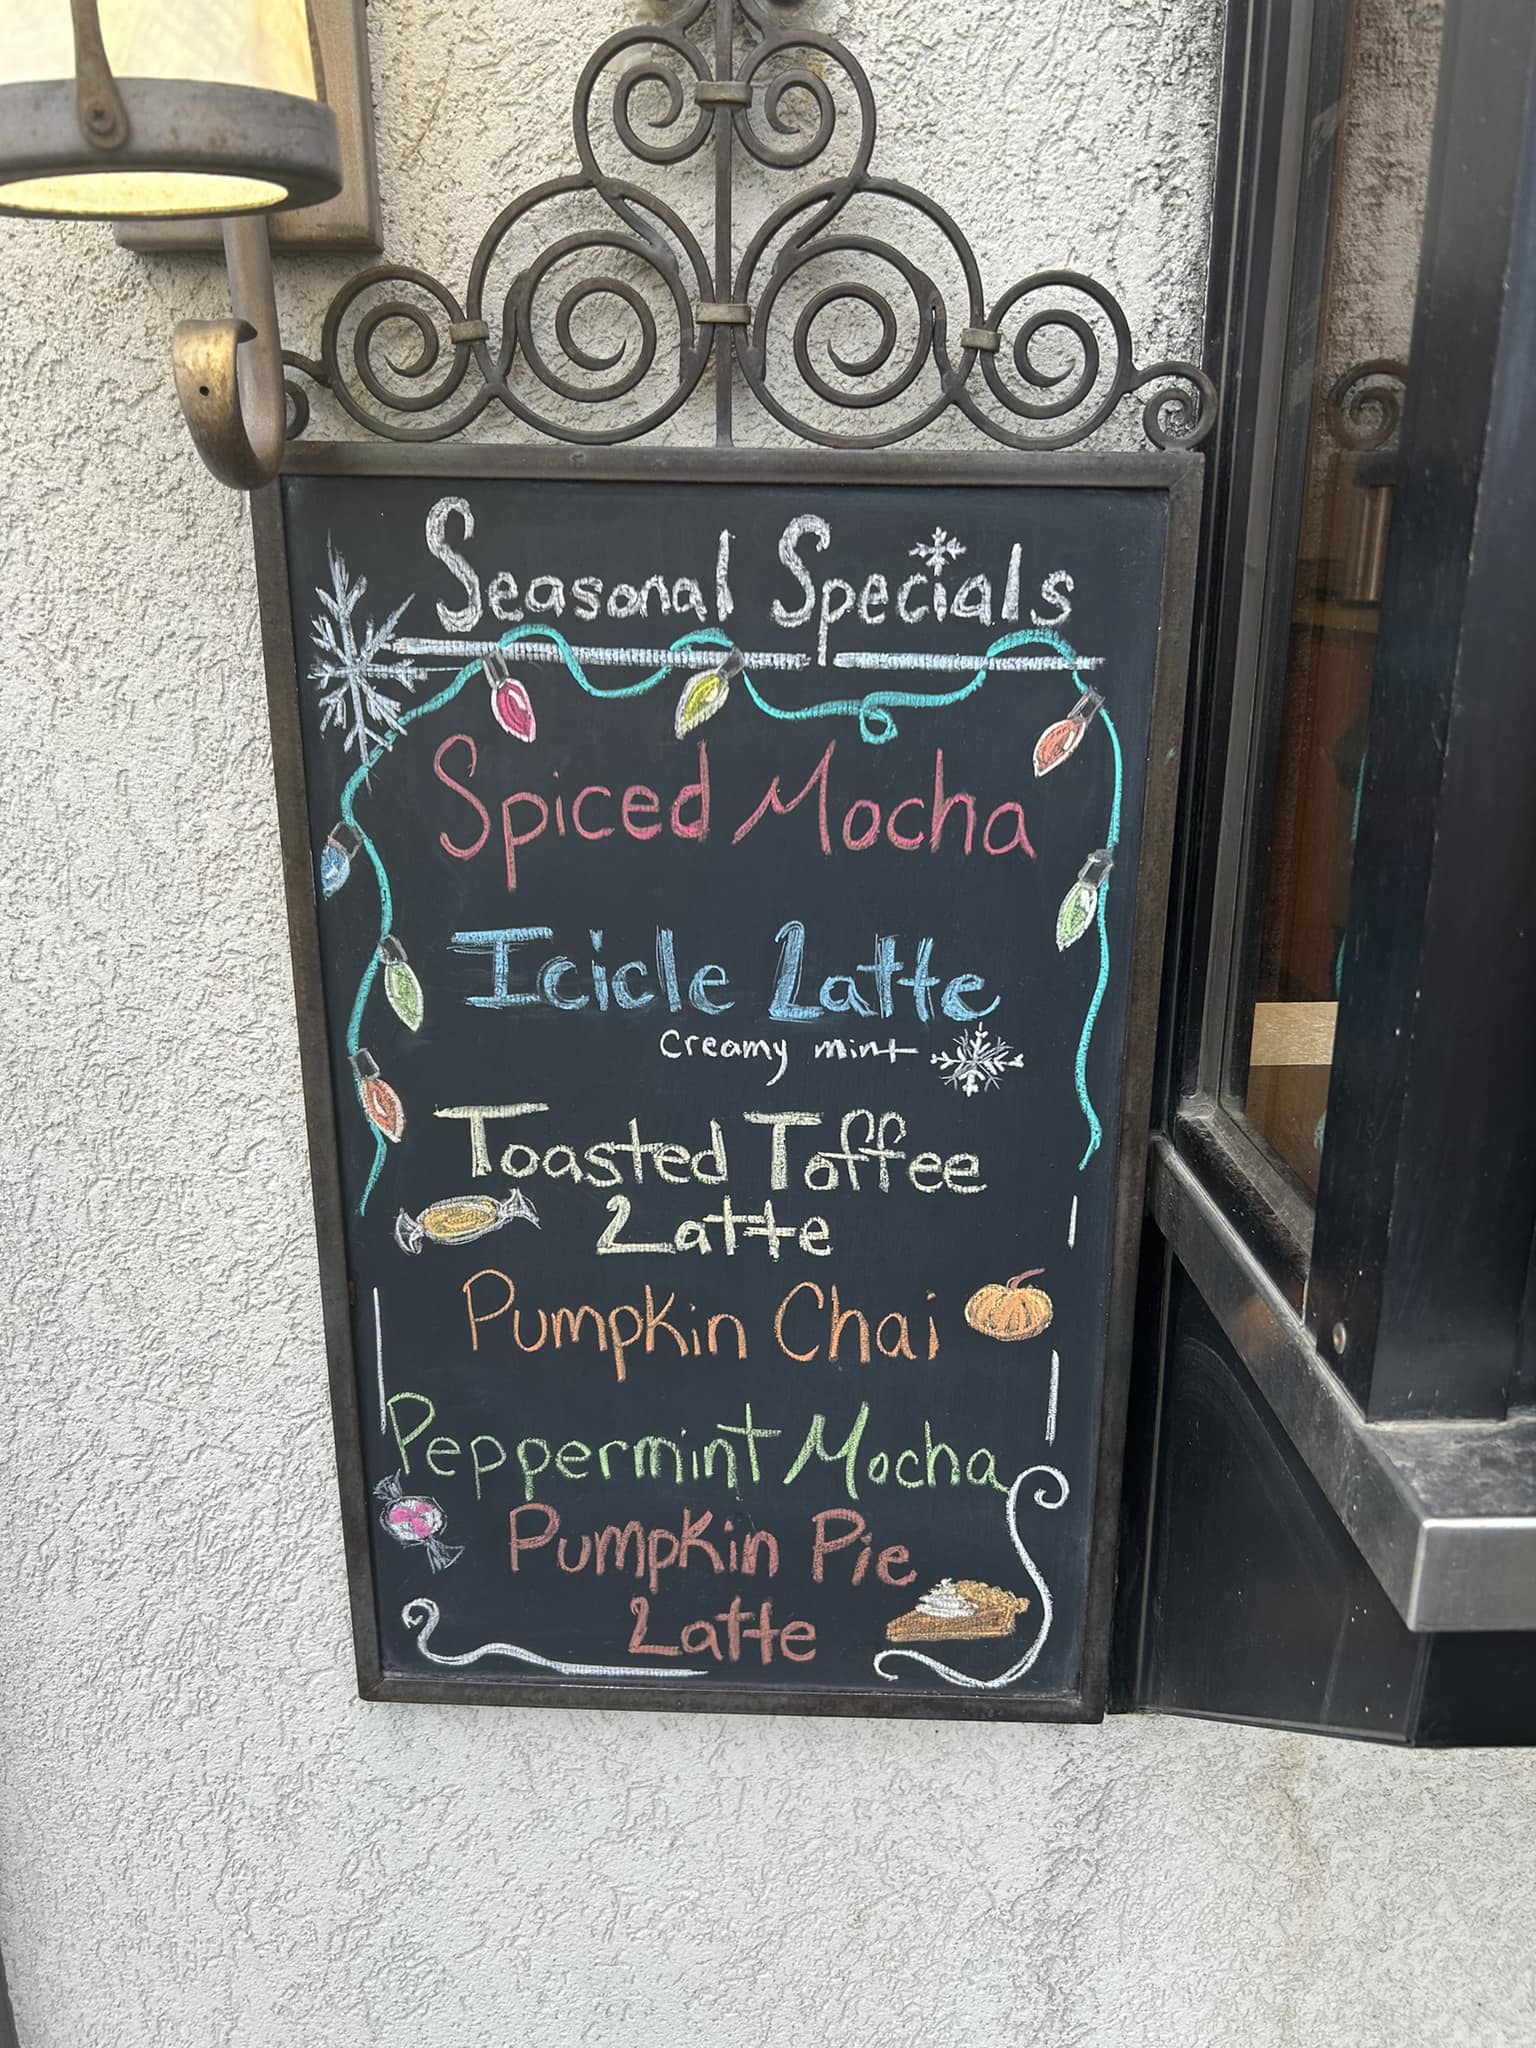 Seasonal Specials
Spiced Mocha
Icicle Latte
creamy mint
Toasted Toffee
Latte
Pumpkin Chai
Peppermint Mocha
Pumpkin Pie
Latte